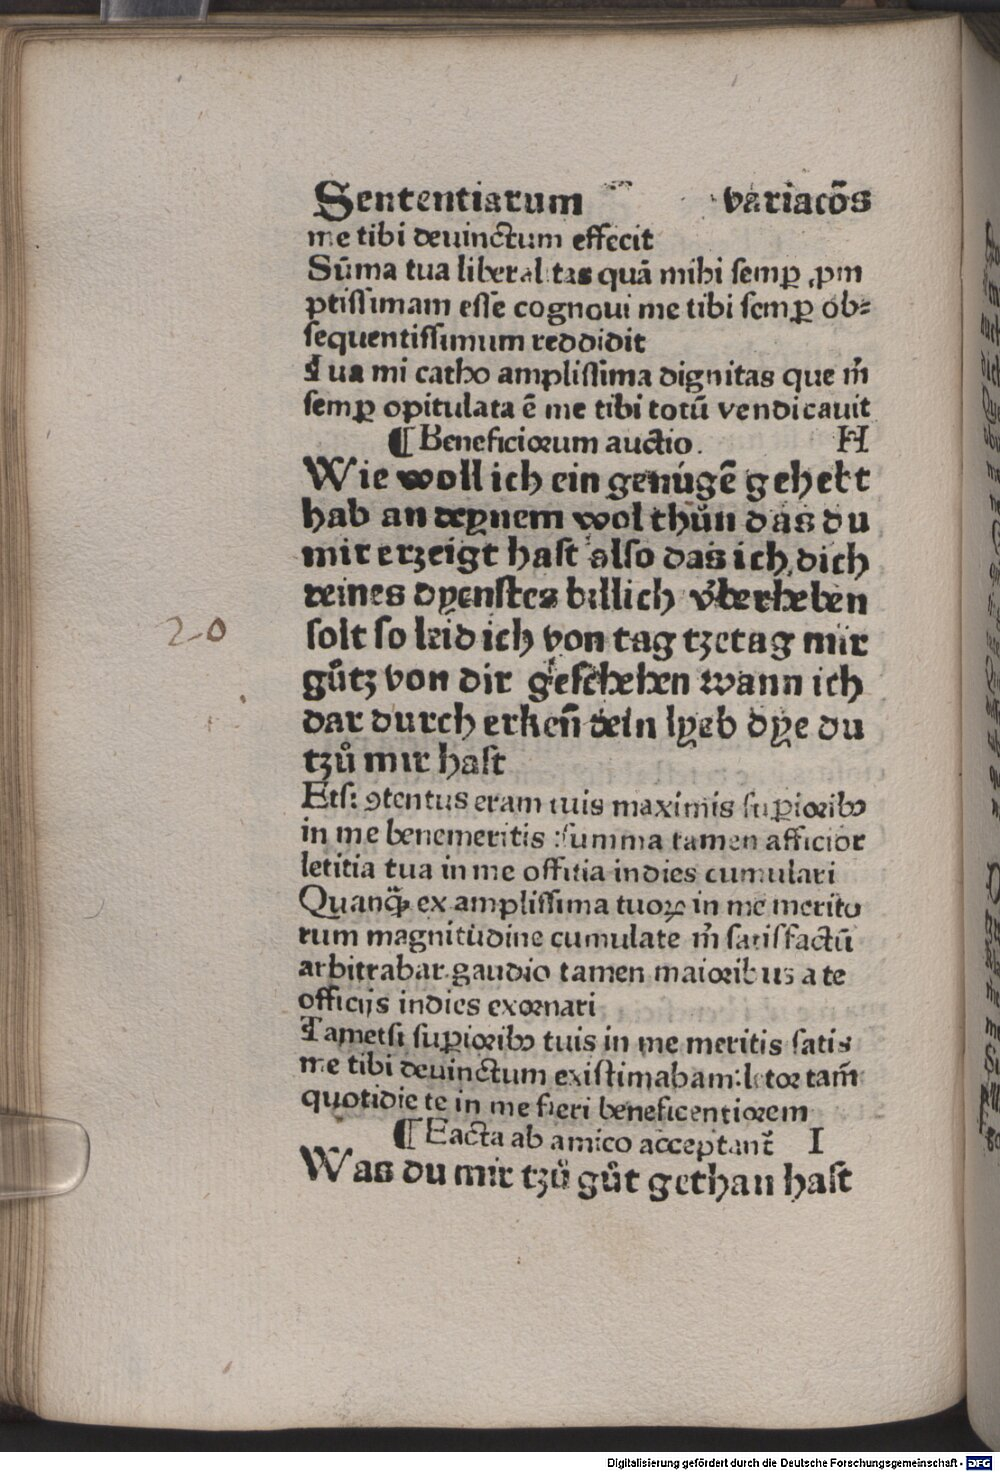 Sententiarum variacōs
me tibi deuinctum effecit
Sūma tua liberalitas quā mihi semꝑ ꝓm
ptissimam esse cognoui me tibi semꝑ ob⸗
sequentissimum reddidit
Tua mi catho amplissima dignitas que m̄
semꝑ opitulata ē me tibi totū vendicauit
¶ Beneficiorum auctio. H
Wie woll ich ein genúgē gehebt
hab an deynem wol thůn das du
mir erzeigt hast also das ich dich
deines dyenstes billich v̊berheben
solt so leid ich von tag tzetag mir
gůtz von dir geschehen wann ich
dar durch erken̄ dein lyeb dye du
tzů mir hast
Etsi ꝯtentus eram tuis maximis suꝑioribꝰ
in me benemeritis : summa tamen afficior
letitia tua in me offitia indies cumulari
Quanꝙ̄ ex amplissima tuoꝝ in me merito
rum magnitudine cumulate m̄ satisfactū
arbitrabar gaudio tamen maioribus a te
officijs indies exornari
Tametsi suꝑioribꝰ tuis in me meritis satis
me tibi deuinctum existimabam: letor tam̄
quotidie te in me fieri beneficentiorem
¶ Eacta ab amico acceptant᷑ I
Was du mir tzů gůt gethan hast
20
Digitalisierung gefördert durch die Deutsche Forschungsgemeinschaft - DFG